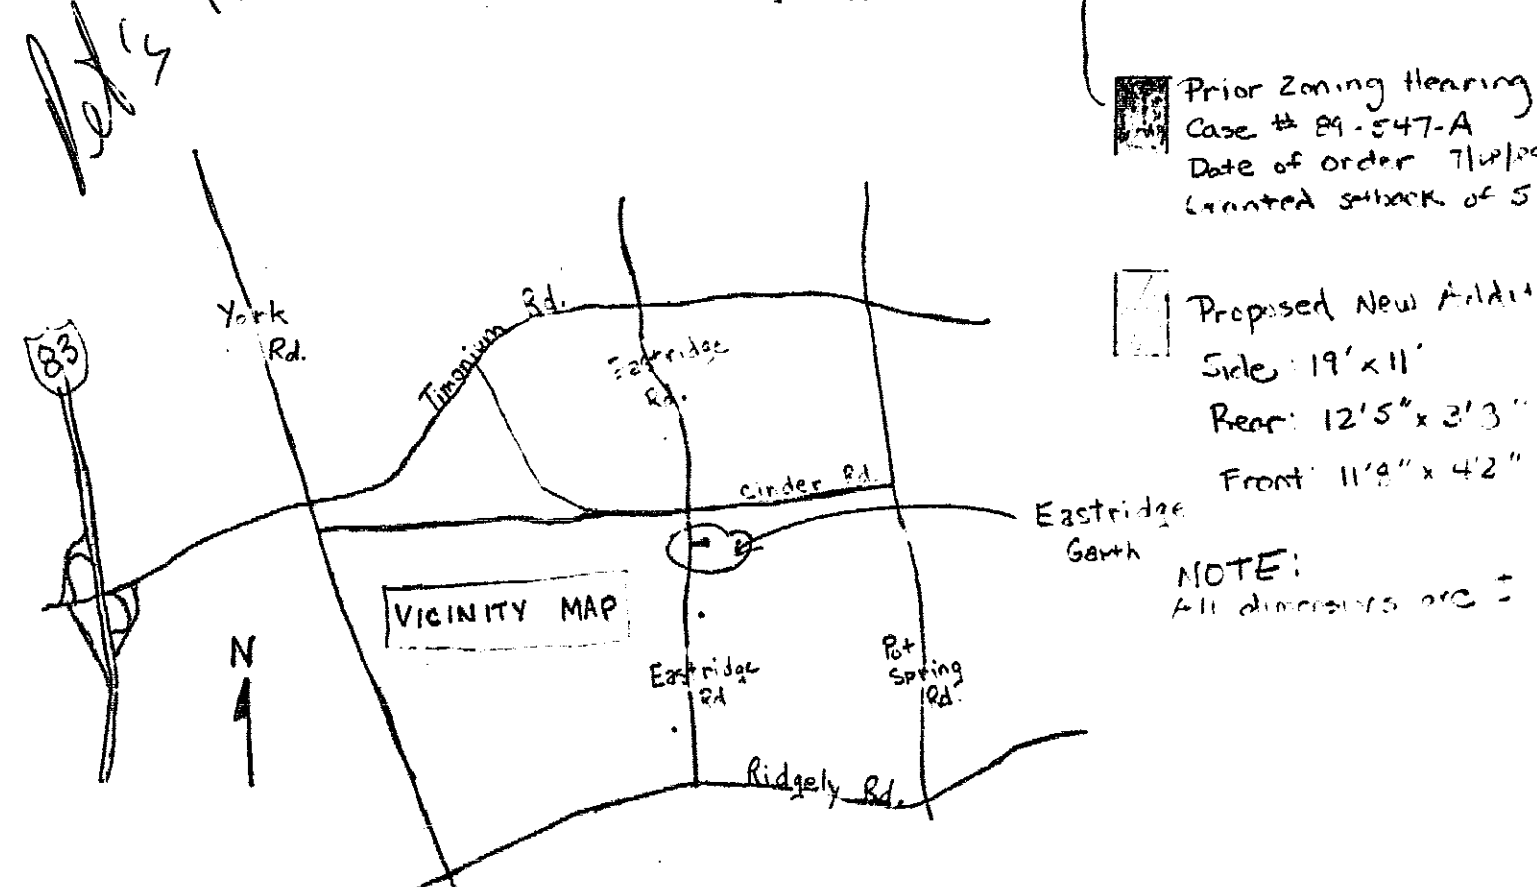 Pet's
Prior Zoning Hearing
Case # 89-547-A
Date of order
Granted setback of 5
Proposed New Addit
Side: 19' x 11'
Rear: 12'5" x 3'3"
Front: 11'8" x 4'2"
NOTE:
All dimensions are ±
York
Rd.
83
Timonium Rd.
Eastridge
Rd.
Cinder Rd.
Eastridge
Garth
VICINITY MAP
N
Eastridge
Rd
Pot
Spring
Rd.
Ridgely Rd.